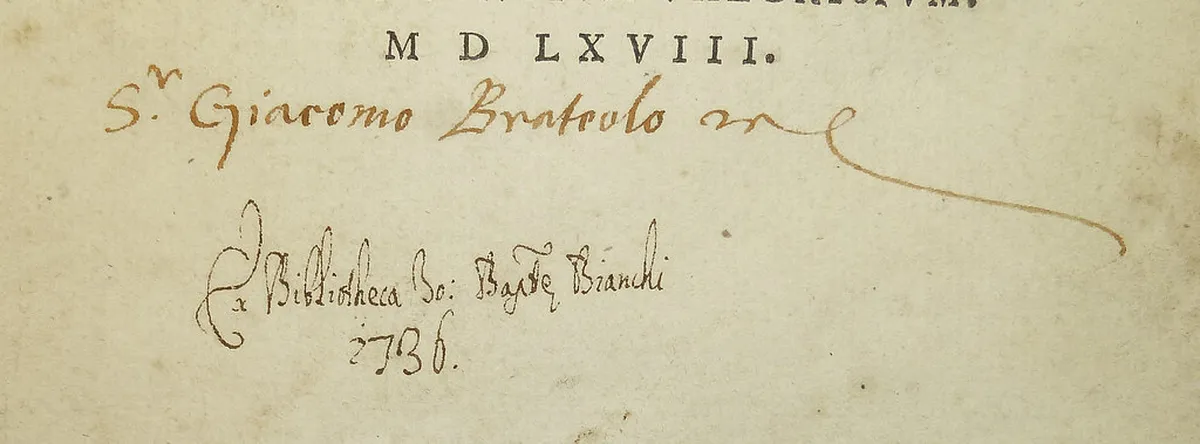 M D LXVIII.
Sr. Giacomo Brateolo
Ex Bibliotheca Jo: Bapte Bianchi
1736.